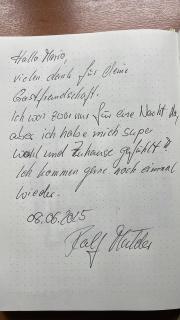 Hallo Mario,
vielen dank für Deine
Gastfreundschaft.
Ich war zwar nur für eine Nacht da,
aber ich habe mich super
wohl und Zuhause gefühlt
Ich kommen gerne noch einmal
wieder.
08.06.2015
Ralf